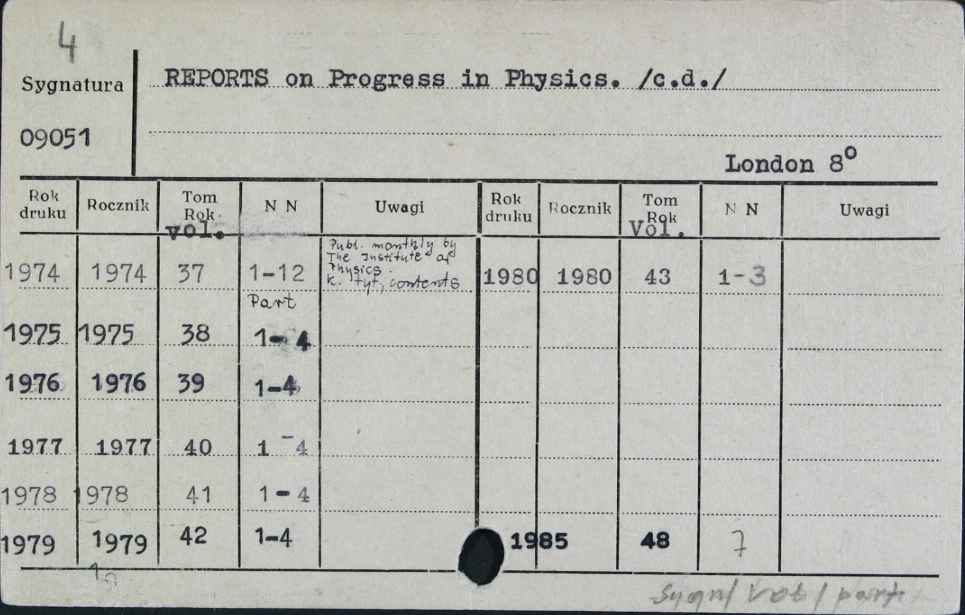 4
Sygnatura REPORTS on Progress in Physics. /c.d./
09051
London 8⁰
Rok druku Rocznik Tom Rok N N Uwagi Rok druku Rocznik Tom Rok N N Uwagi
vol. Vol.
Publ. monthly by
The Institute of
Physics.
1974 1974 37 1-12 K. tyt, contents 1980 1980 43 1-3
Part
1975 1975 38 1-4
1976 1976 39 1-4
1977 1977 40 1-4
1978 1978 41 1-4
1979 1979 42 1-4 1985 48 7
Sygn/ vol/ part